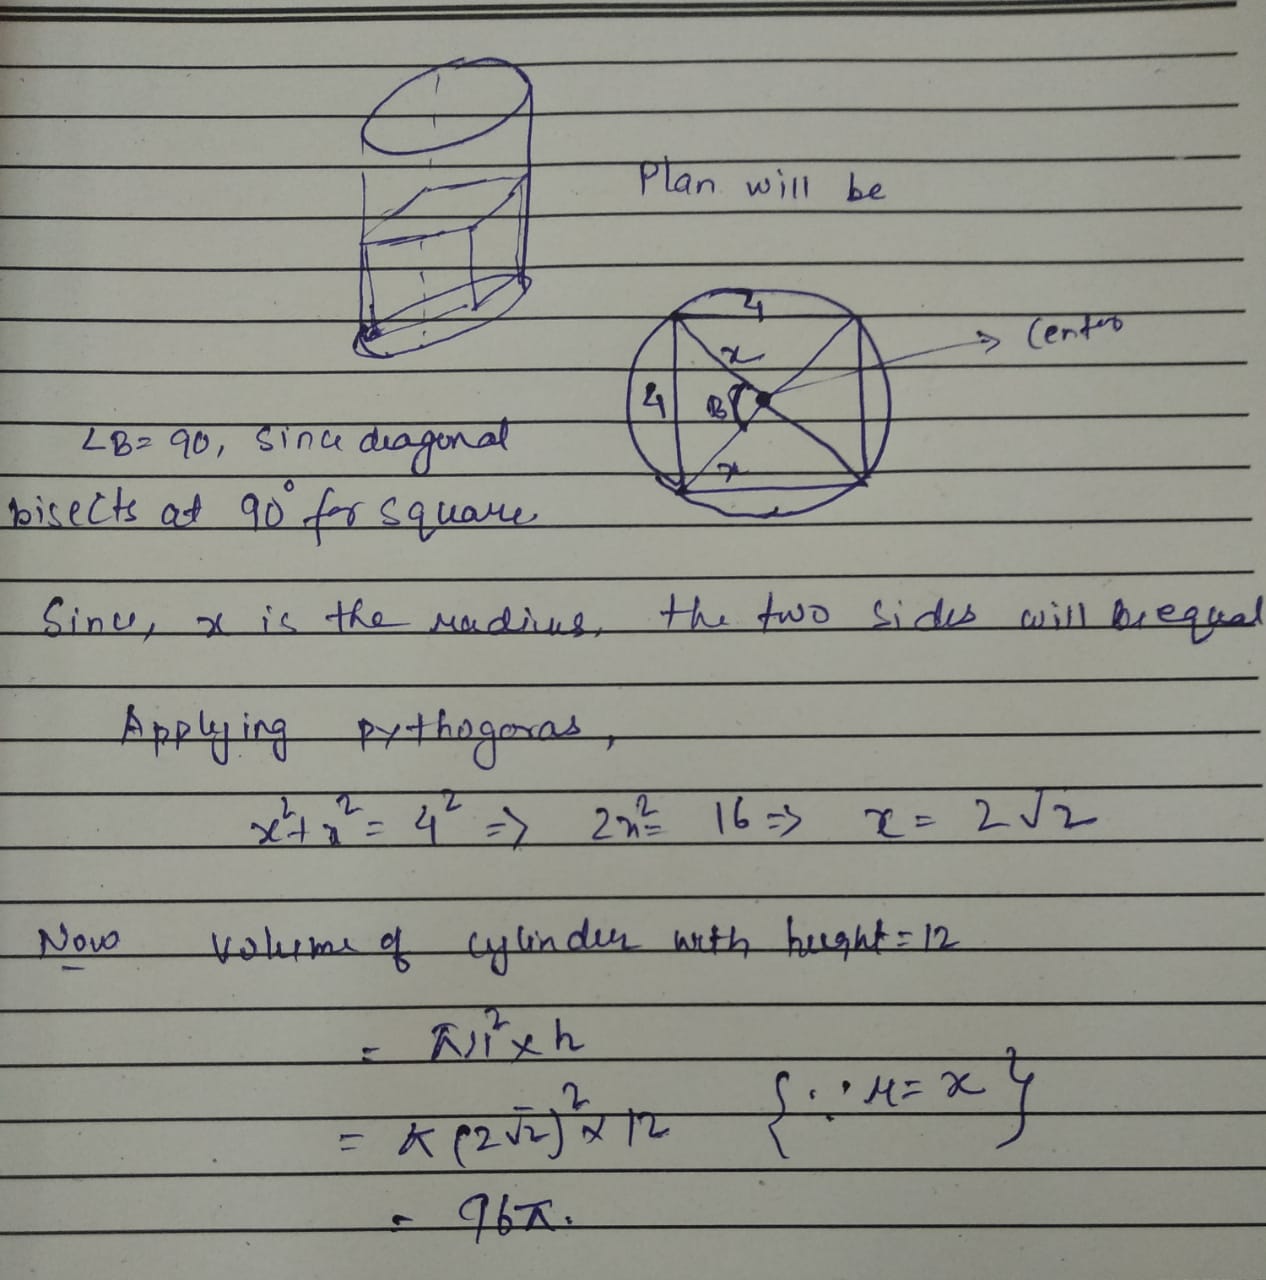 Plan will be
4
x
Center
4
B
x
∠B = 90, Since diagonal
bisects at 90° for square
Since, x is the radius, the two sides will be equal
Applying pythogoras,
x² + x² = 4² => 2x² = 16 => x = 2√2
Now volume of cylinder with height = 12
= πr² x h
= π (2√2)² x 12 {∵ r = x}
= 96π.